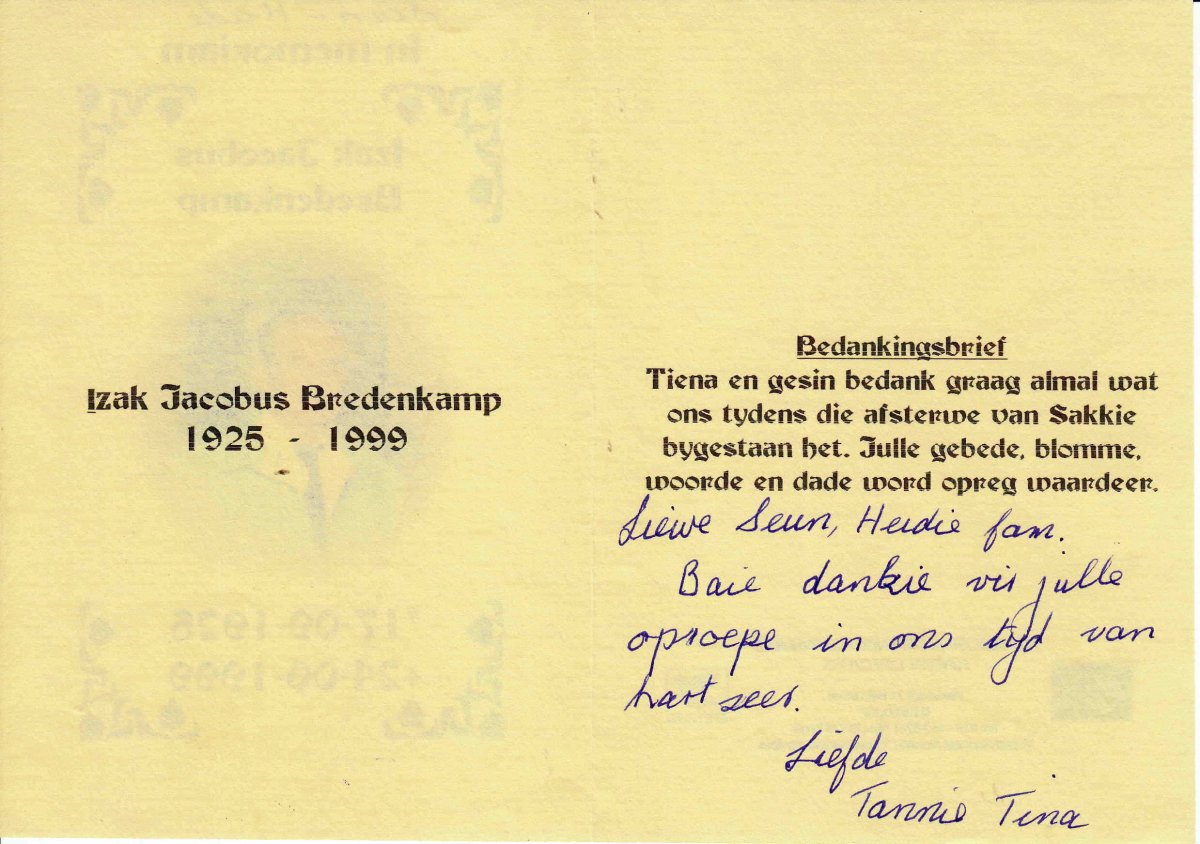 Izak Jacobus Bredenkamp
1925 - 1999
Bedankingsbrief
Tiena en gesin bedank graag almal wat
ons tydens die afsterwe van Sakkie
bygestaan het. Julle gebede, blomme,
woorde en dade word opreg waardeer.
Liewe Seun, Heidie fam.
Baie dankie vir julle
oproepe in ons tyd van
hart seer.
Liefde
Tannie Tina
In memoriam
Izak Jacobus
Bredenkamp